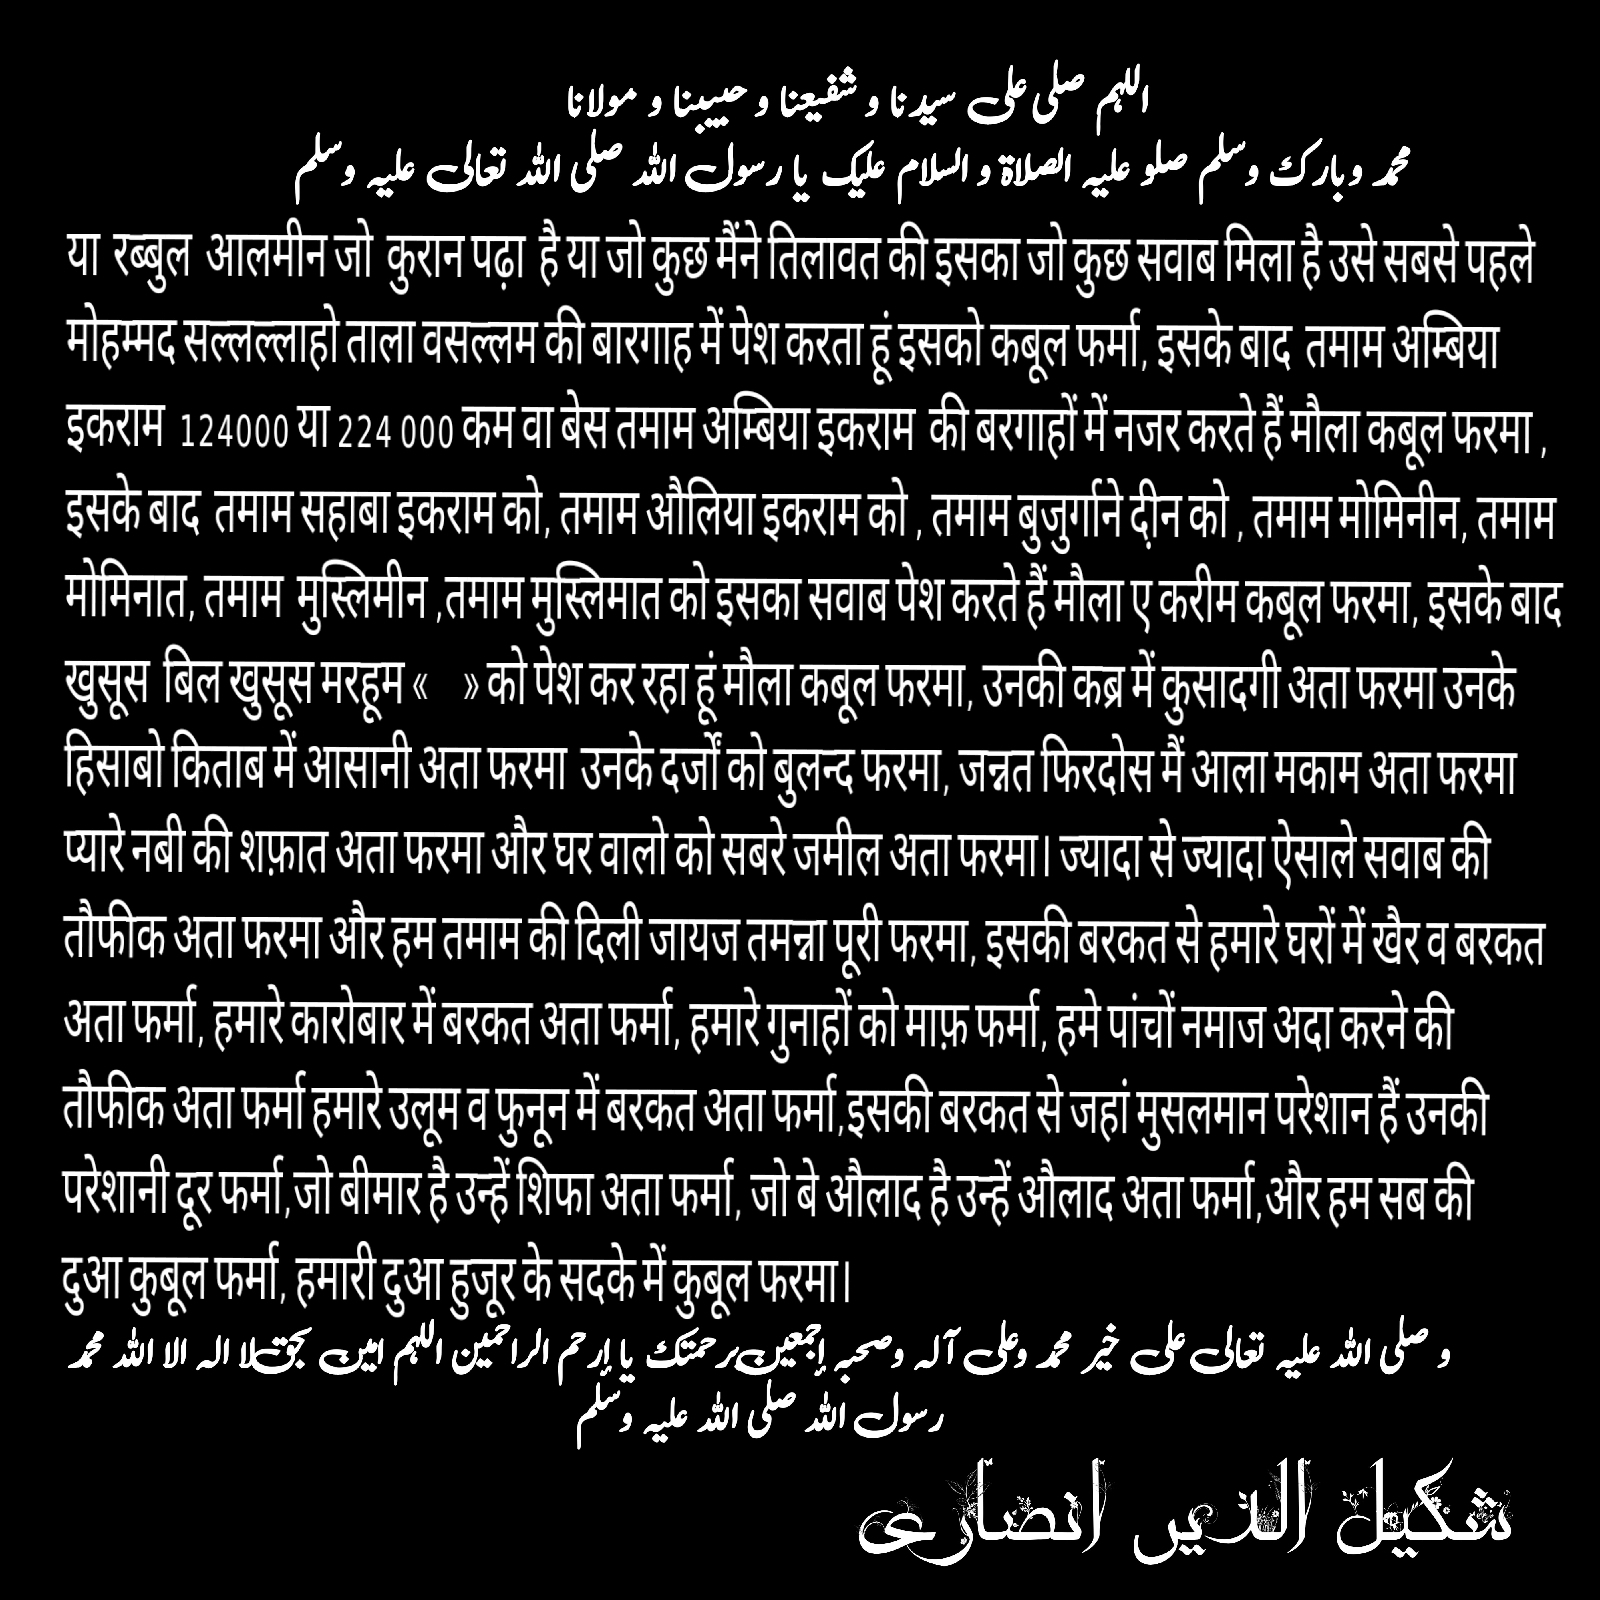 اللہم صلی علی سیدنا و شفیعنا و حبیبنا و مولانا
محمد وبارک وسلم صلو علیہ الصلاۃ و السلام علیک یا رسول اللہ صلی اللہ تعالی علیہ وسلم
या रब्बुल आलमीन जो कुरान पढ़ा है या जो कुछ मैंने तिलावत की इसका जो कुछ सवाब मिला है उसे सबसे पहले
मोहम्मद सल्लल्लाहो ताला वसल्लम की बारगाह में पेश करता हूं इसको कबूल फर्मा, इसके बाद तमाम अम्बिया
इकराम 124000 या 224 000 कम वा बेस तमाम अम्बिया इकराम की बरगाहों में नजर करते हैं मौला कबूल फरमा ,
इसके बाद तमाम सहाबा इकराम को, तमाम औलिया इकराम को , तमाम बुजुर्गाने दी़न को , तमाम मोमिनीन, तमाम
मोमिनात, तमाम मुस्लिमीन ,तमाम मुस्लिमात को इसका सवाब पेश करते हैं मौला ए करीम कबूल फरमा, इसके बाद
खुसूस बिल खुसूस मरहूम « » को पेश कर रहा हूं मौला कबूल फरमा, उनकी कब्र में कुसादगी अता फरमा उनके
हिसाबो किताब में आसानी अता फरमा उनके दर्जों को बुलन्द फरमा, जन्नत फिरदोस मैं आला मकाम अता फरमा
प्यारे नबी की शफ़ात अता फरमा और घर वालो को सबरे जमील अता फरमा। ज्यादा से ज्यादा ऐसाले सवाब की
तौफीक अता फरमा और हम तमाम की दिली जायज तमन्ना पूरी फरमा, इसकी बरकत से हमारे घरों में खैर व बरकत
अता फर्मा, हमारे कारोबार में बरकत अता फर्मा, हमारे गुनाहों को माफ़ फर्मा, हमे पांचों नमाज अदा करने की
तौफीक अता फर्मा हमारे उलूम व फुनून में बरकत अता फर्मा,इसकी बरकत से जहां मुसलमान परेशान हैं उनकी
परेशानी दूर फर्मा,जो बीमार है उन्हें शिफा अता फर्मा, जो बे औलाद है उन्हें औलाद अता फर्मा,और हम सब की
दुआ कुबूल फर्मा, हमारी दुआ हुजूर के सदके में कुबूल फरमा।
و صلی اللہ علیہ تعالی علی خیر محمد وعلی آلہ وصحبہ إجمعین برحمتک یا إرحم الراحمین اللہم امین بحق لا الہ الا اللہ محمد
رسول اللہ صلی اللہ علیہ وسلم
شکیل الدین انصاری